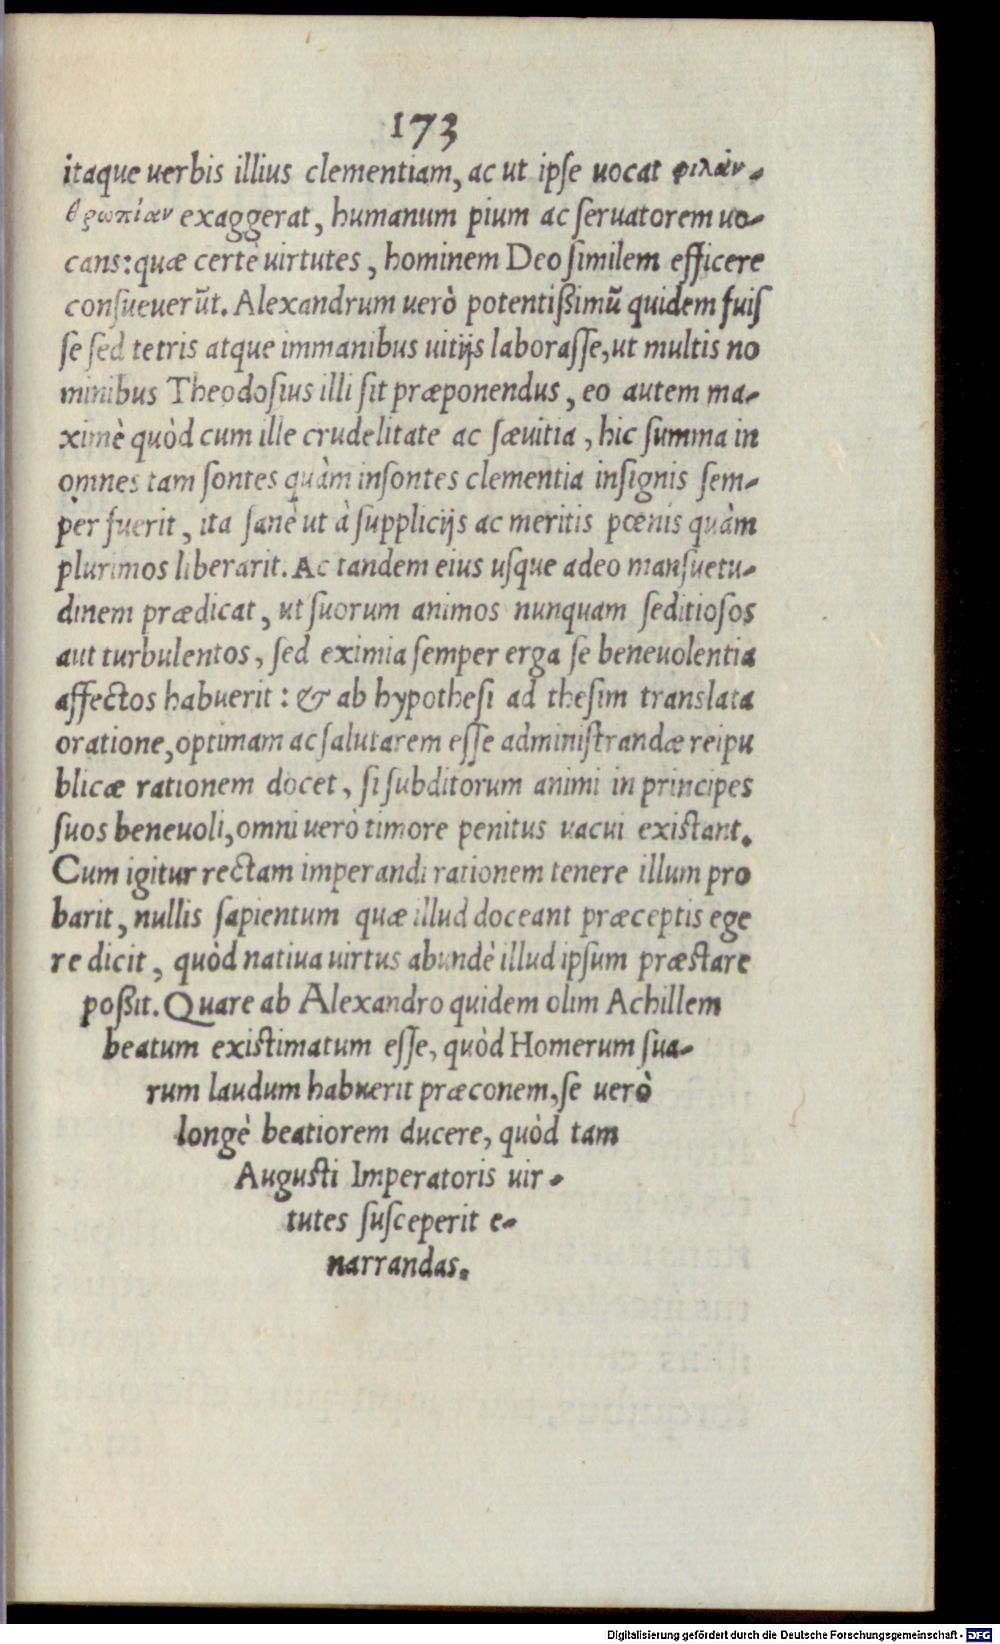 173
itaque uerbis illius clementiam, ac ut ipſe uocat φιλάν-
θρωπίαν exaggerat, humanum pium ac ſeruatorem uo-
cans: quæ certè uirtutes, hominem Deo ſimilem efficere
conſueuerũt. Alexandrum uerò potentißimũ quidem fuiſ
ſe ſed tetris atque immanibus uitijs laboraſſe, ut multis no
minibus Theodoſius illi ſit præponendus, eo autem ma-
ximè quòd cum ille crudelitate ac ſæuitia, hic ſumma in
omnes tam ſontes quàm inſontes clementia inſignis ſem-
per fuerit, ita ſanè ut à ſupplicijs ac meritis pœnis quàm
plurimos liberarit. Ac tandem eius uſque adeo manſuetu-
dinem prædicat, ut ſuorum animos nunquam ſeditioſos
aut turbulentos, ſed eximia ſemper erga ſe beneuolentia
affectos habuerit: & ab hypotheſi ad theſim translata
oratione, optimam ac ſalutarem eſſe adminiſtrandæ reipu
blicæ rationem docet, ſi ſubditorum animi in principes
ſuos beneuoli, omni uerò timore penitus uacui exiſtant.
Cum igitur rectam imperandi rationem tenere illum pro
barit, nullis ſapientum quæ illud doceant præceptis ege
re dicit, quòd natiua uirtus abundè illud ipſum præſtare
poßit. Quare ab Alexandro quidem olim Achillem
beatum exiſtimatum eſſe, quòd Homerum ſua-
rum laudum habuerit præconem, ſe uerò
longè beatiorem ducere, quòd tam
Auguſti Imperatoris uir-
tutes ſuſceperit e-
narrandas.
Digitalisierung gefördert durch die Deutsche Forschungsgemeinschaft - DFG